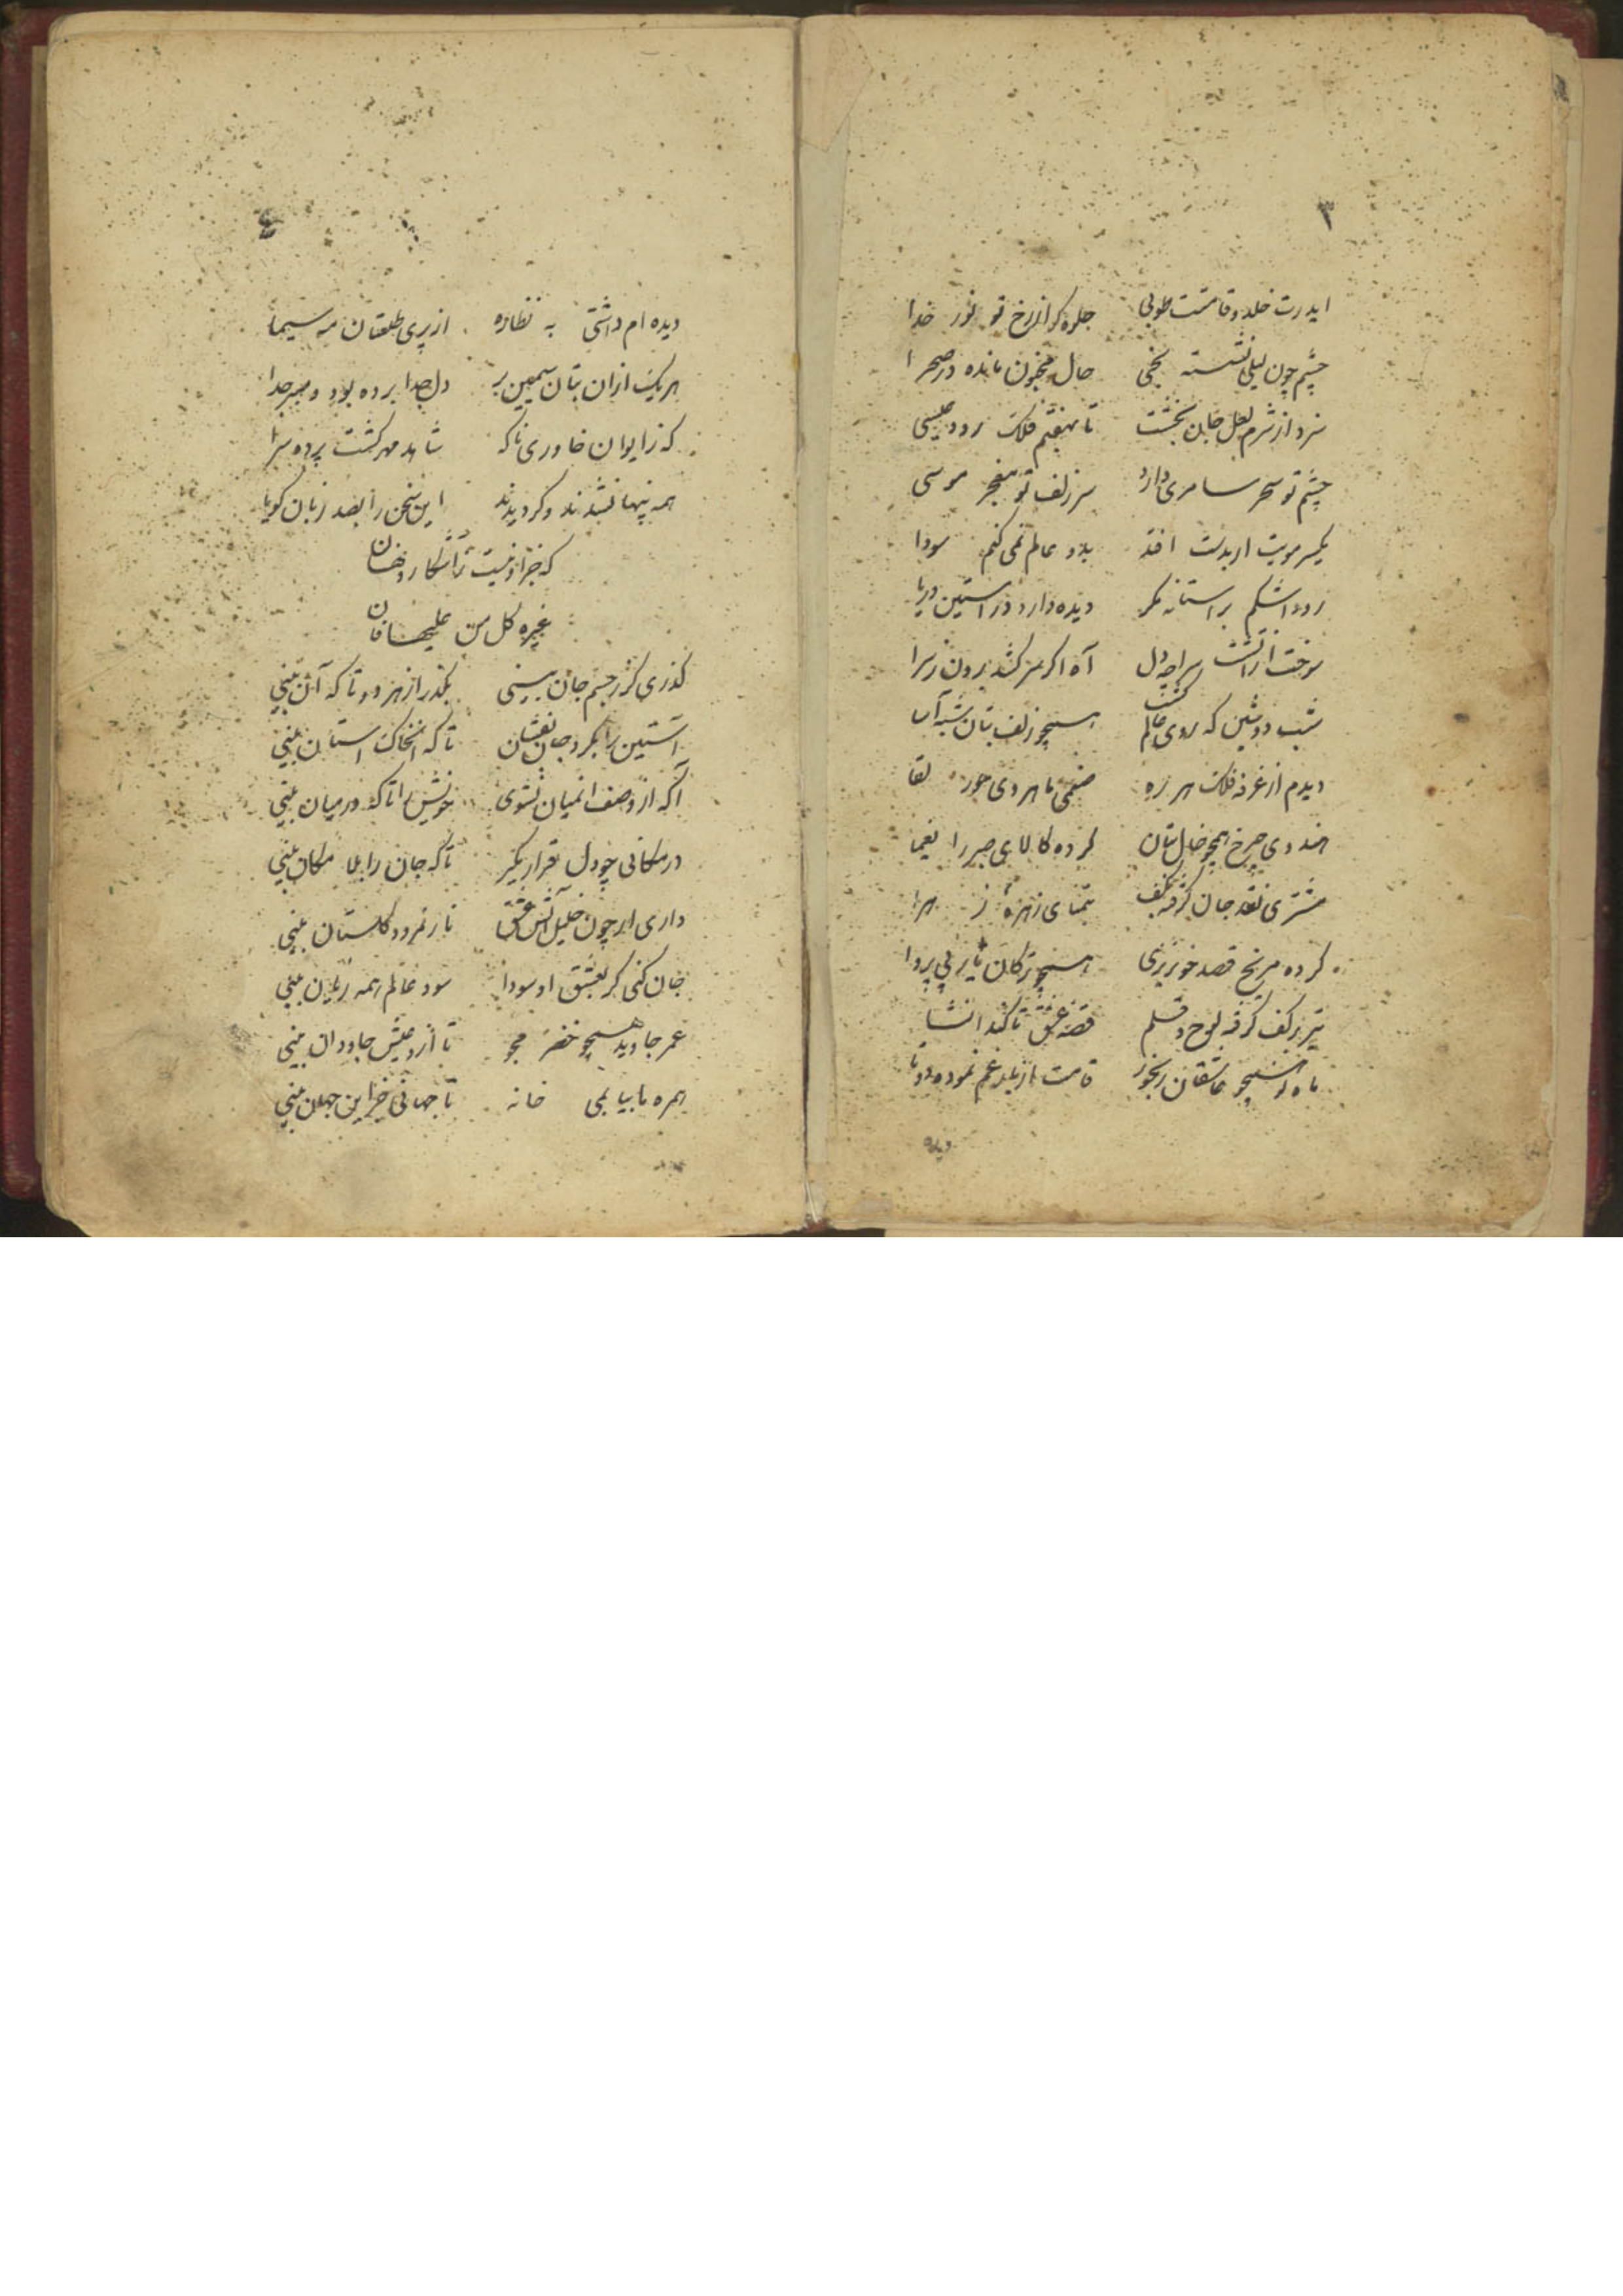 ۳
ایدرت خلد و قامتت طوبی جلوه گر از رخ تو نور خدا
چشم چون لیلی نشسته بکنجی حال مجنون مانده در صحرا
سزد از شرم لعل جان بخشت تا بهفتم فلک رود عیسی
چشم تو سحر سامری دارد سر زلف تو معجز موسی
یکسر مویت ار بدست افتد بدو عالم نمی کنم سودا
رود اشکم بر آستانه نکر دیده دارد در آستین دریا
سوخت از آتشت سراچه دل آه اکر سر کشد برون ز سرا
شب دوشین که روی عالم کشت همچو زلف بتان شبه آسا
دیدم از غرفه فلک هر ره صنمی ماهروی حور لقا
هندوی چرخ همچو خال بتان کرده کالای صبر را یغما
مشتری نقد جان کرفته بکف بتمنای زهره ز هرا
کرده مریخ قصد خونریزی همچو ترکان یار بی پروا
تیر بر کف کرفته لوح و قلم قصه عشق تا کند انشا
ماه نو همچو عاشقان رنجور قامت از بار غم نموده دوتا
دیده
٤
دیده ام داشتی به نظاره از پری طلعتان مه سیما
هر یک از ان بتان سیمین بر دل جدا برده بود و صبر جدا
که ز ایوان خاوری ناکه شاهد مهر کشت پرده سرا
همه پنهان شدند و کردیدند این سخن را بصد زبان کویا
که جز او نیست آشکار و نهان
غیره کل من علیها فان
کذری کر ز جسم جان بینی بکذر از هر دو تا که آن بینی
آستین را بکرد جان بفشان تا که از خاک آستان بینی
آکه از وصف انمیان نشوی خویش را تا که در میان بینی
در مکانی چو دل قرار بکیر تا که جان را بلا مکان بینی
داری ار چون خلیل آتش عشق نار نمرود کلستان بینی
جان کنی کر بعشق او سودا سود عالم همه زیان بینی
عمر جاوید همچو خضر مجو تا ازو عیش جاودان بینی
همره ما بیا بمی خانه تا جهانی جز این جهان بینی